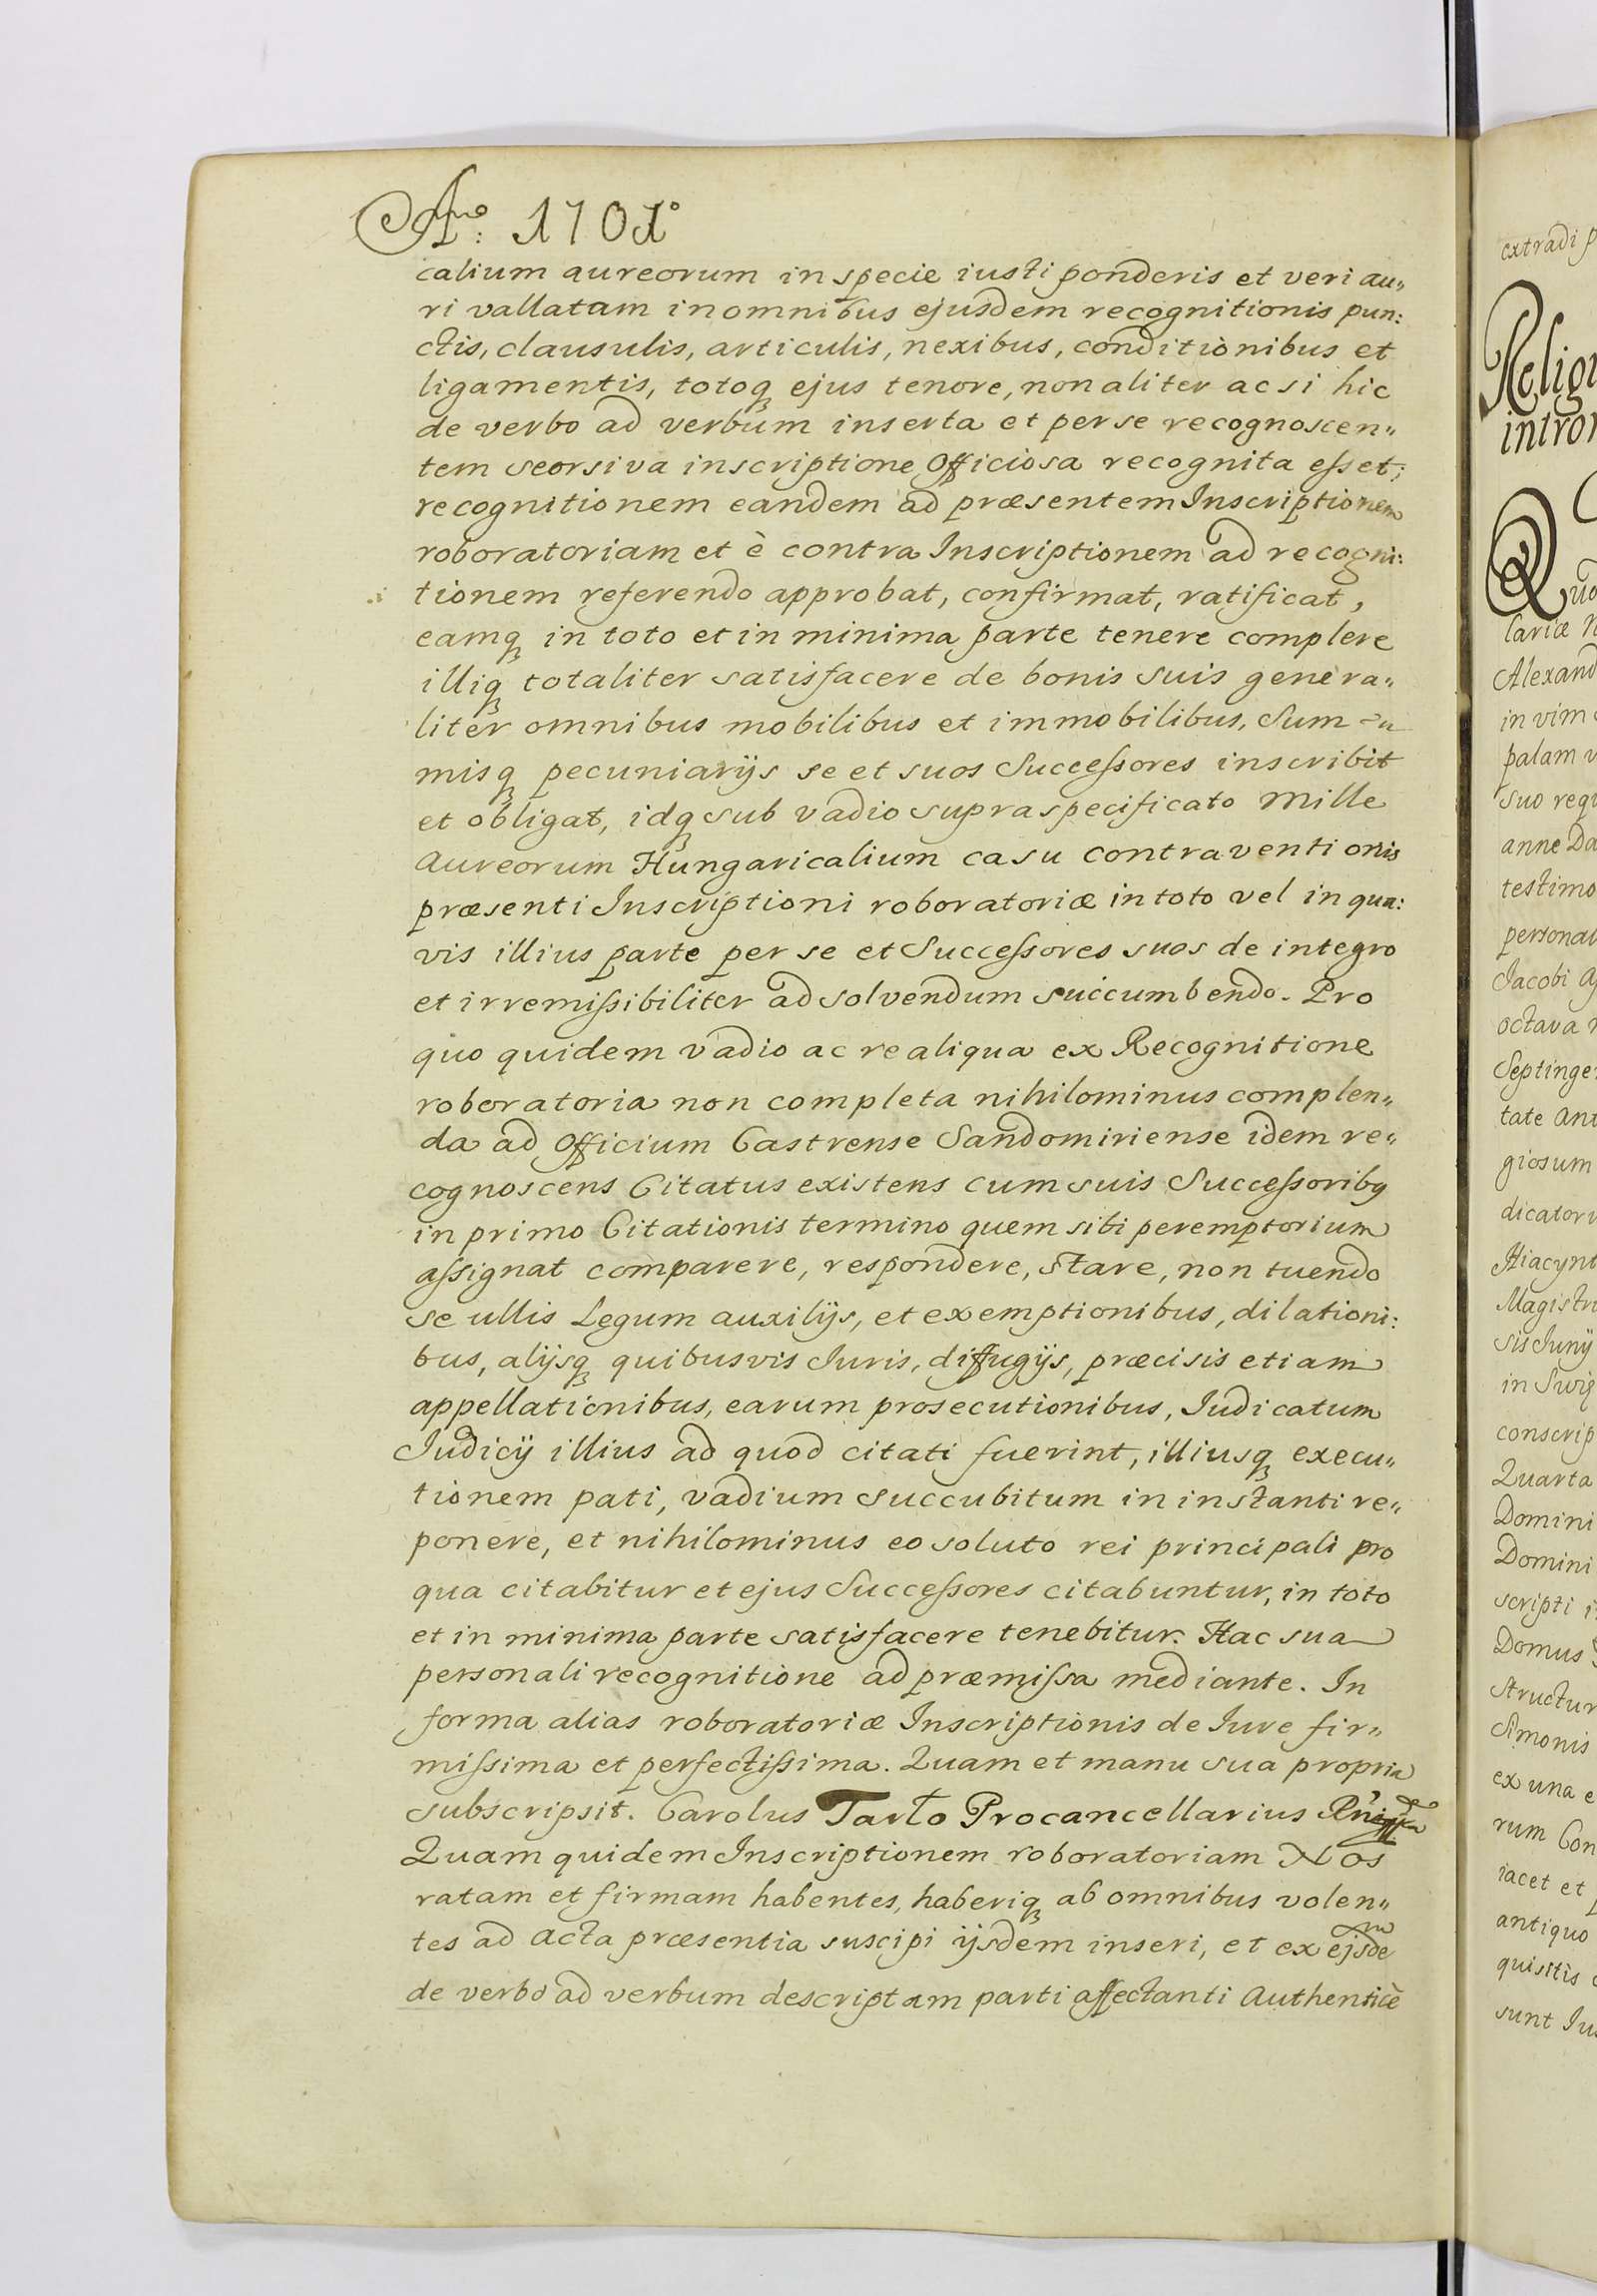 Año: 1701°
calium aureorum in specie iusti ponderis et veri au„
ri vallatam in omnibus ejusdem recognitionis pun:
ctis, clausulis, articulis, nexibus, conditionibus et
ligamentis, totoq₃ ejus tenore, non aliter ac si hic
de verbo ad verbum inserta et per se recognoscen„
tem seorsiva inscriptione Officiosa recognita esset;
recognitionem eandem ad præsentem Inscriptionem
roboratoriam et è contra Inscriptionem ad recogni:
tionem referendo approbat, confirmat, ratificat,
eamq₃ in toto et in minima parte tenere complere
illiq₃ totaliter satisfacere de bonis suis genera„
liter omnibus mobilibus et immobilibus, Sum„
misq₃ pecuniarijs se et suos Successores inscribit
et obligat, idq₃ sub vadio supra specificato Mille
aureorum Hungaricalium casu contraventionis
præsenti Inscriptioni roboratoriæ in toto vel in qua:
vis illius parte per se et Successores suos de integro
et irremissibiliter ad solvendum succumbendo. Pro
quo quidem vadio ac re aliqua ex Recognitione
roboratoria non completa nihilominus complen„
da ad Officium Castrense Sandomiriense idem re„
cognoscens Citatus existens cum suis Successoribq
in primo Citationis termino quem sibi peremptorium
assignat comparere, respondere, stare, non tuendo
se ullis Legum auxilijs, et exemptionibus, dilationi:
bus, alijsq₃ quibusvis Iuris, diffugijs, præcisis etiam
appellationibus, earum prosecutionibus, Iudicatum
Iudicij illius ad quod citati fuerint, illiusq₃ execu„
tionem pati, vadium succubitum in instanti re„
ponere, et nihilominus eo soluto rei principali pro
qua citabitur et ejus Successores citabuntur, in toto
et in minima parte satisfacere tenebitur. Hac sua
personali recognitione ad præmissa mediante. In
forma alias roboratoriæ Inscriptionis de Iure fir„
missima et perfectissima. Quam et manu sua propria
subscripsit. Carolus Tarło Procancellarius
Quam quidem Inscriptionem roboratoriam Nos
ratam et firmam habentes, haberiq₃ ab omnibus volen„
tes ad acta præsentia suscipi ijsdem inseri, et ex ejsde
de verbo ad verbum descriptam parti affectanti Authenticè
extradi
Relig
intro
Quo
lariæ
Alexand
in vim
palam
suo req
anne Da
testimo
personal
Jacobi
octava
Septinge
tate Ant
giosum
dicator
Hiacynt
Magistr
sis Iunij
in
conscrip
Quarta
Domini
Domini
scripti
Domus
structur
Simonis
ex una e
rum Con
iacet et
antiquo
quisitis
sunt Iu